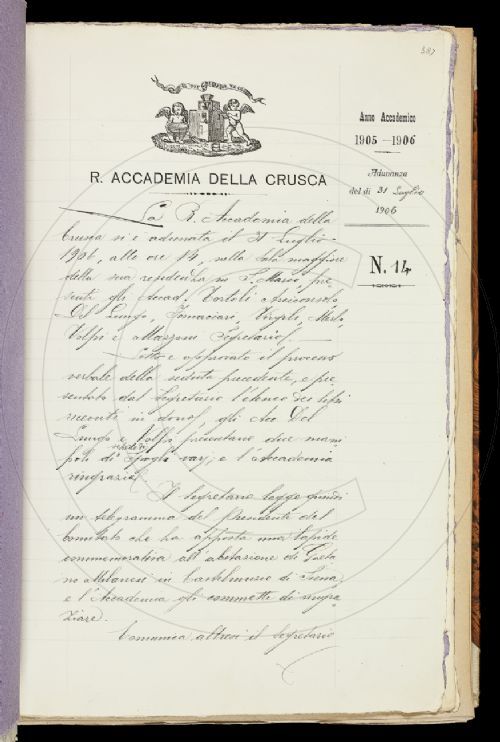 387
Anno Accademico
1905-1906
Adunanza
del dì 31 Luglio
1906
N. 14
R. ACCADEMIA DELLA CRUSCA
La R. Accademia della
Crusca si è adunata il 31 Luglio
1906, alle ore 14, nella sala maggiore
della sua residenza in S. Marco, pre
senti gli Accad. Tortoli Arciconsolo,
Del Lungo, Tomacari, Vergili, Merlo,
Volpi e Mazzoni Segretario.
Letto e approvato il processo
verbale della seduta precedente, e pre
sentato dal Segretario l'elenco dei libri
ricevuti in dono, gli Acc. Del
Lungo e Volpi presentano due mani
poli di spogli varj; e l'Accademia
ringrazia.
Il Segretario legge quindi
un telegramma del Presidente del
Comitato che ha apposta una lapide
commemorativa all'abitazione di Gaeta
no Milanesi in di Siena,
e l'Accademia gli commette di ringra
ziare.
Comunica altresì il Segretario